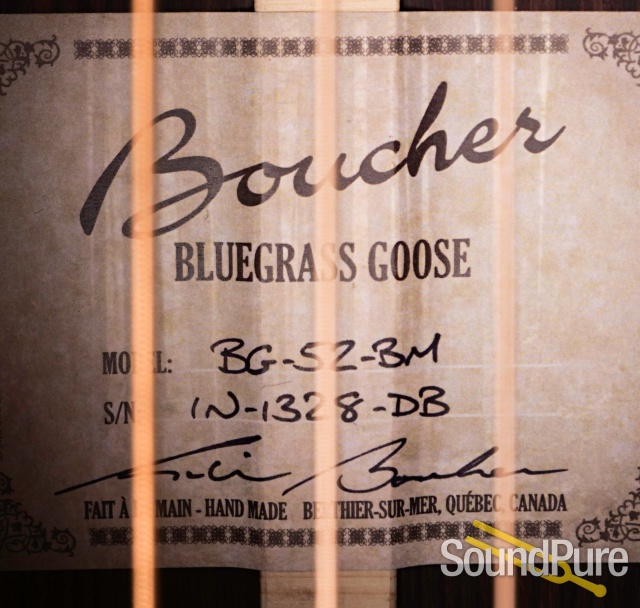 Boucher
BLUEGRASS GOOSE
MODEL: BG-52-BM
S/N: IN-1328-DB
FAIT À LA MAIN - HAND MADE BERTHIER-SUR-MER, QUÉBEC, CANADA
SoundPure